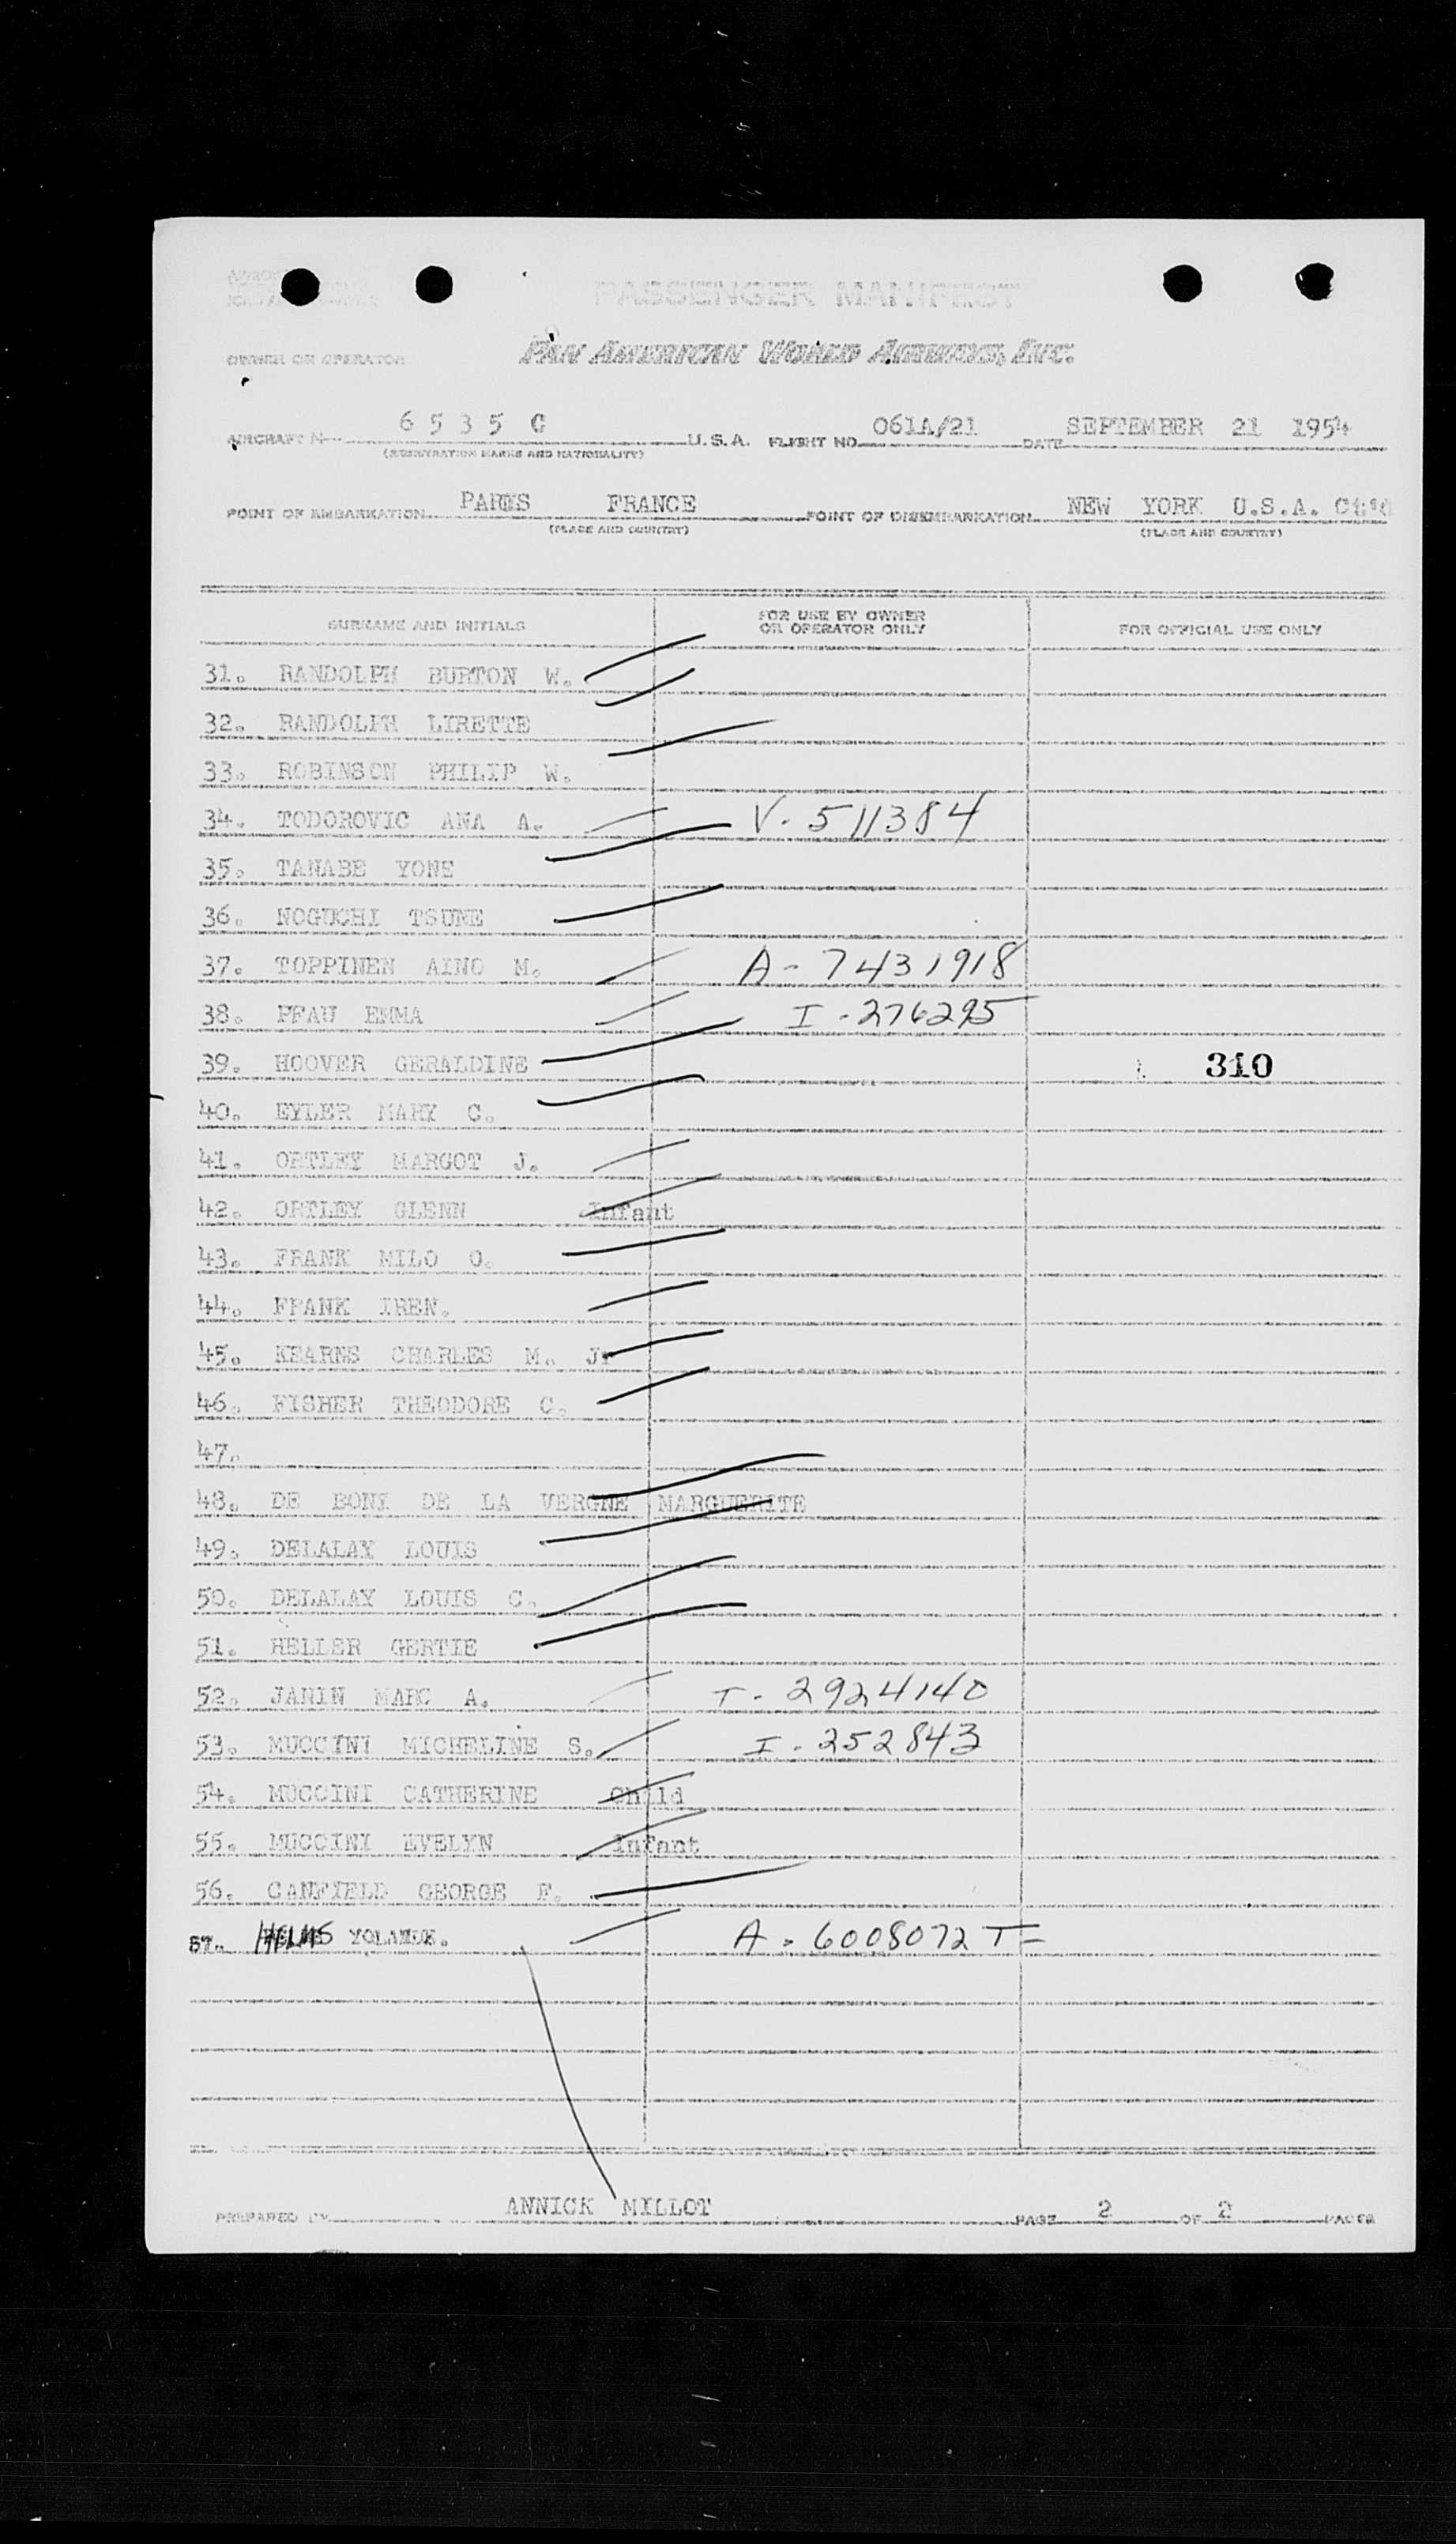 PASSENGER MANIFEST
OWNER OR OPERATOR PAN AMERICAN WORLD AIRWAYS, INC.
AIRCRAFT N 6 5 3 5 C U.S.A. FLIGHT NO. 061A/21 DATE SEPTEMBER 21 1954
(REGISTRATION MARKS AND NATIONALITY)
POINT OF EMBARKATION PARIS FRANCE POINT OF DISEMBARKATION NEW YORK U.S.A. Ct'd
(PLACE AND COUNTRY) (PLACE AND COUNTRY)
SURNAME AND INITIALS FOR USE BY OWNER OR OPERATOR ONLY FOR OFFICIAL USE ONLY
31. RANDOLPH BURTON W.
32. RANDOLPH LIRETTE
33. ROBINSON PHILIP W.
34. TODOROVIC ANA A. V. 511384
35. TANABE YONE
36. NOGUCHI TSUNE
37. TOPPINEN AINO M. A - 7431918
38. PFAU EMMA I - 276295
39. HOOVER GERALDINE 310
40. EYLER MARY C.
41. ORTLEY MARGOT J.
42. ORTLEY GLENN Infant
43. FRANK MILO O.
44. FRANK IREN.
45. KEARNS CHARLES M. Jr
46. FISHER THEODORE C.
47.
48. DE BONY DE LA VERGNE MARGUERITE
49. DELALAY LOUIS
50. DELALAY LOUIS C.
51. HELLER GERTIE
52. JANIN MARC A. I - 2924140
53. MUCCINI MICHELINE S. I - 252843
54. MUCCINI CATHERINE Child
55. MUCCINI EVELYN Infant
56. CANFIELD GEORGE F.
57. HELMS YOLANDE. A - 6008072 T
PREPARED BY ANNICK MILLOT PAGE 2 OF 2 PAGES